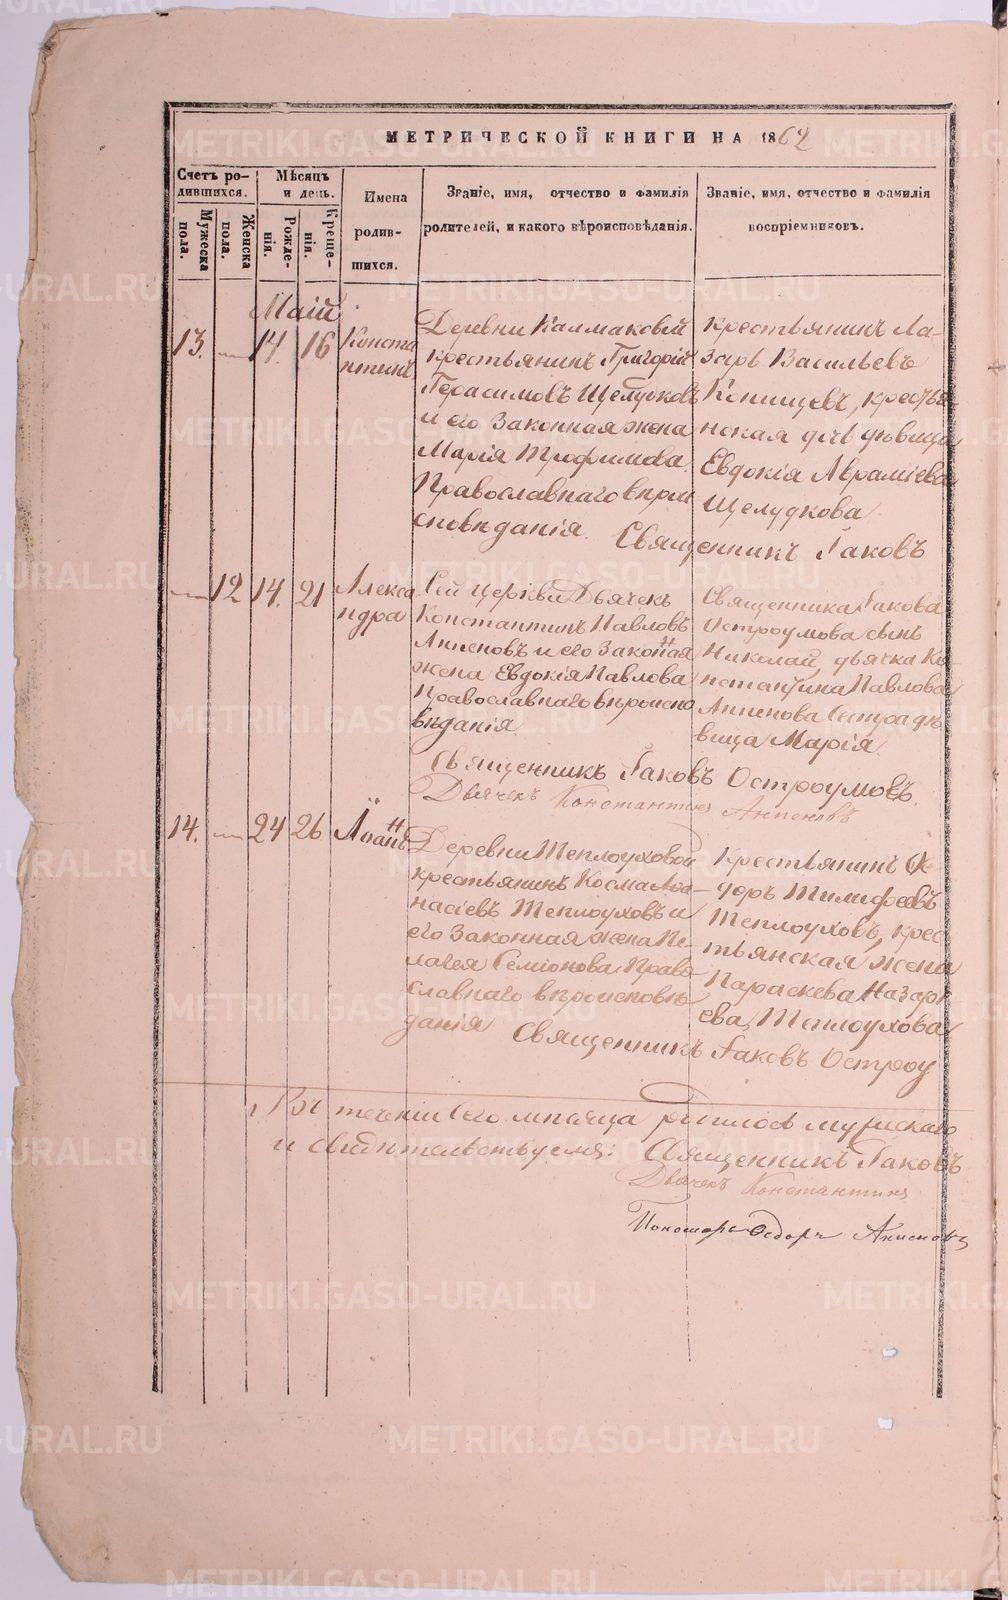 МЕТРИЧЕСКОЙ КНИГИ НА 1862
Счетъ ро-
дившихся.
Мужеска
пола.
Женска
пола.
Мѣсяцъ
и день.
Рожде-
нія.
Креще-
нія.
Имена
родив-
шихся.
Званіе, имя, отчество и фамилія
родителей, и какого вѣроисповѣданія.
Званіе, имя, отчество и фамилія
воспріемниковъ.
Маій
13. — 14. 16
Конста
нтинъ
Деревни Калмаковой
крестьянинъ Григорій
Герасимовъ Щелудковъ
и его законная жена
Марія Трофимова.
Православнаго вѣрои
сповѣданія.
Крестьянинъ Ла-
зарь Васильевъ
Конищевъ, крестья
нская дѣвица
Евдокія Авраміева
Щелудкова
Священникъ Іаковъ
— 12 14. 21
Алекса
ндра
Сей церкви Дьячекъ
Константинъ Павловъ
Аппеновъ и его законная
жена Евдокія Павлова
Православнаго вѣроиспо
вѣданія
Священника Іакова
Остроумова сынъ
Николай, дьячка Ко-
нстантина Павлова
Аппенова Сестра дѣ
вица Марія
Священникъ Іаковъ Остроумовъ.
Дьячекъ Константинъ
14. — 24 26
Іоаннъ
Деревни Теплоуховой
крестьянинъ Косма Аѳа-
насіевъ Теплоуховъ и
его законная жена Пе-
лагея Семіонова Право
славнаго вѣроисповѣ
данія
Крестьянинъ Ѳе-
доръ Тимофеевъ
Теплоуховъ, крес
тьянская жена
Параскева Назарь
ева, Теплоухова
Священникъ Іаковъ Остроу
Въ теченіи сего мѣсяца родилось мужскаго
и свидѣтельствуемъ: Священникъ Іаковъ
Дьячекъ Константинъ
Пономарь Ѳедоръ
METRIKI.GASO-URAL.RU